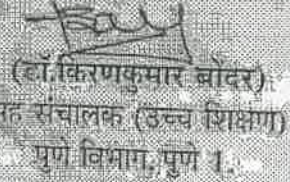 (डॉ.किरणकुमार बोंदर)
सह संचालक (उच्च शिक्षण)
पुणे विभाग, पुणे 1.